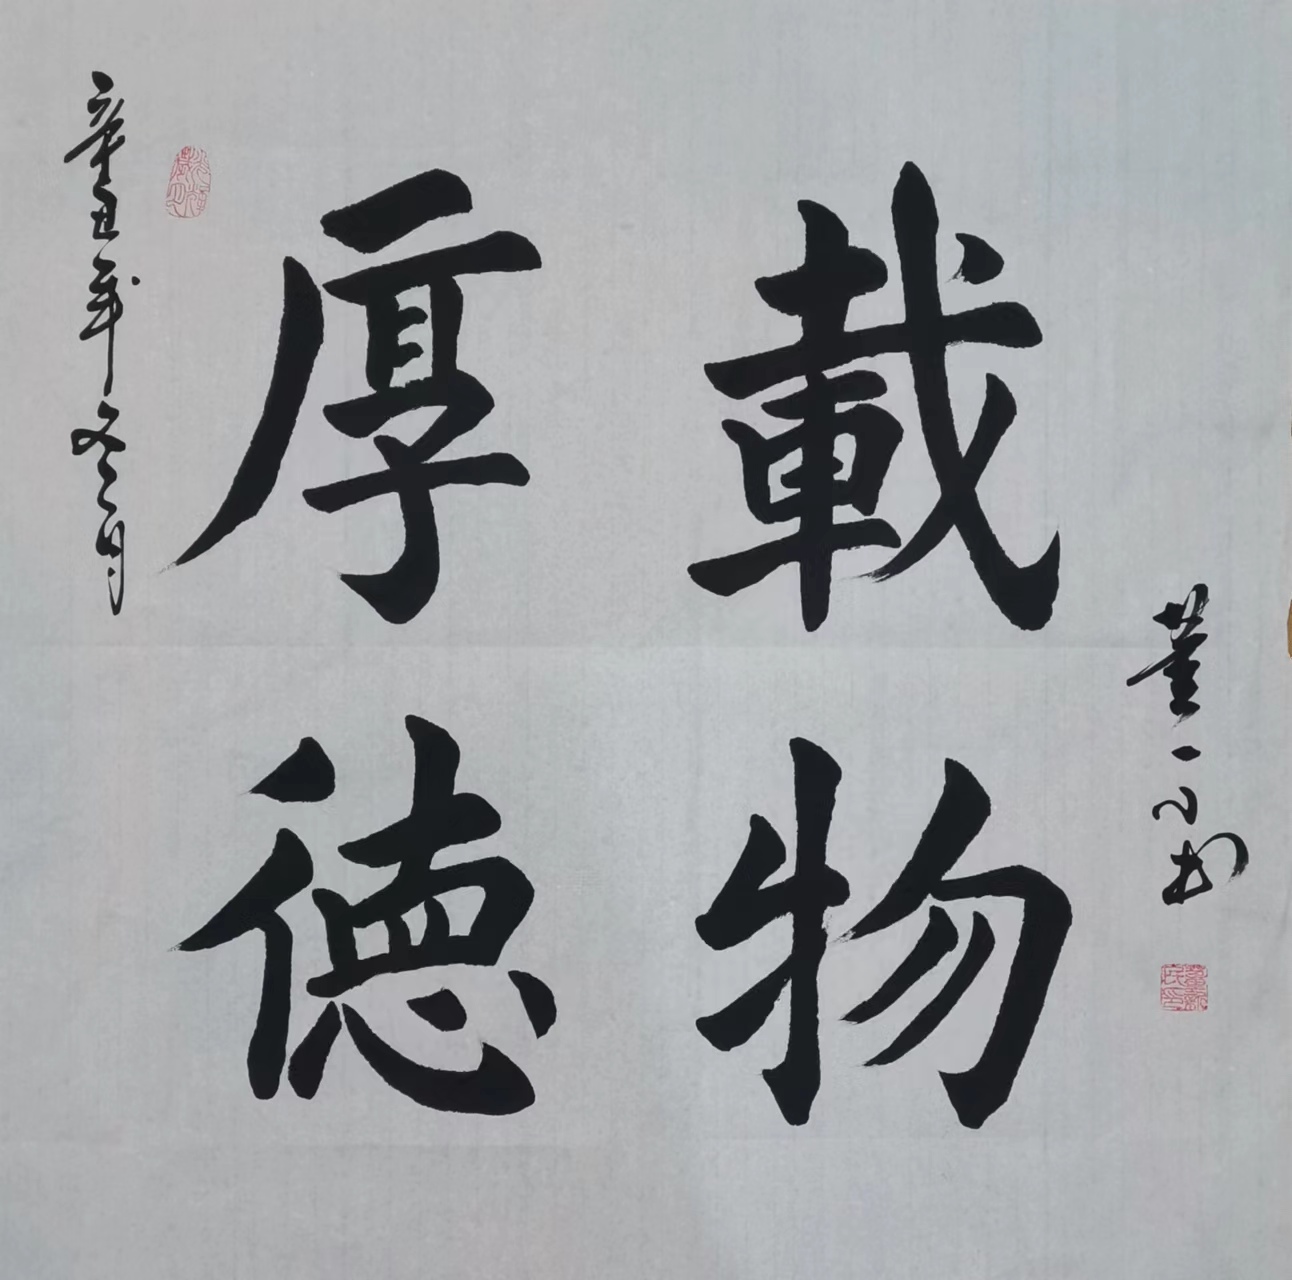 辛丑年冬月
厚德
載物
董一书